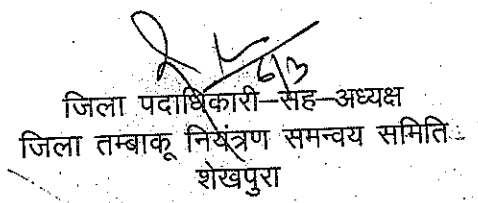 6/3
जिला पदाधिकारी–सह–अध्यक्ष
जिला तम्बाकू नियंत्रण समन्वय समिति
शेखपुरा